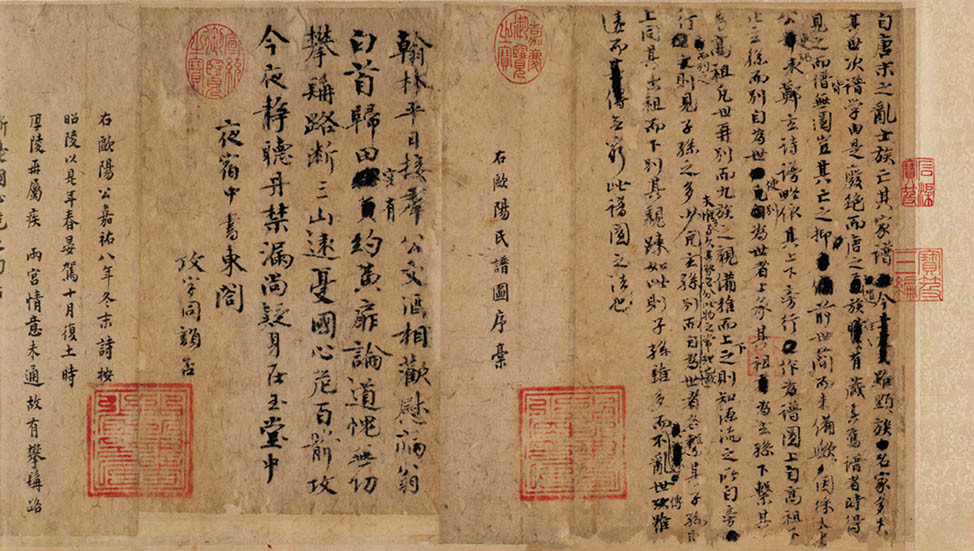 自唐末之亂士族亡其家譜今雖顯族名家多失
其世次譜學由是廢絕而唐之遺族往往有藏其舊譜者時得
見之而譜皆無圖豈其亡之抑前世簡而未備歟因採太史
公史記表鄭玄詩譜略依其上下旁行作為譜圖上自高祖下
止玄孫而別自為世使別為世者上承其祖為玄孫下繫其
孫為高祖凡世再別而九族之親備推而上之則知源流之所自旁
行而列之則見子孫之多少夫惟多與久其勢必分此物之常理也凡玄孫別而自為世者各繫其子孫則
上同其出祖而下別其親疎如此則子孫雖多而不亂世傳雖
遠而無窮此譜圖之法也
右歐陽氏譜圖序稾
嘉慶御覽之寶
石渠寶笈
寶笈三編
翰林平日接羣公文酒相歡慰病翁
白首歸田空有約黃扉論道愧無功
攀髯路斷三山遠憂國心危百箭攻
今夜靜聽丹禁漏尚疑身在玉堂中
夜宿中書東閣
攻字同韻否
宣統御覽之寶
右歐陽公嘉祐八年冬末詩按
昭陵以是年春晏駕十月復土時
厚陵再屬疾 兩宮情意未通故有攀髯路